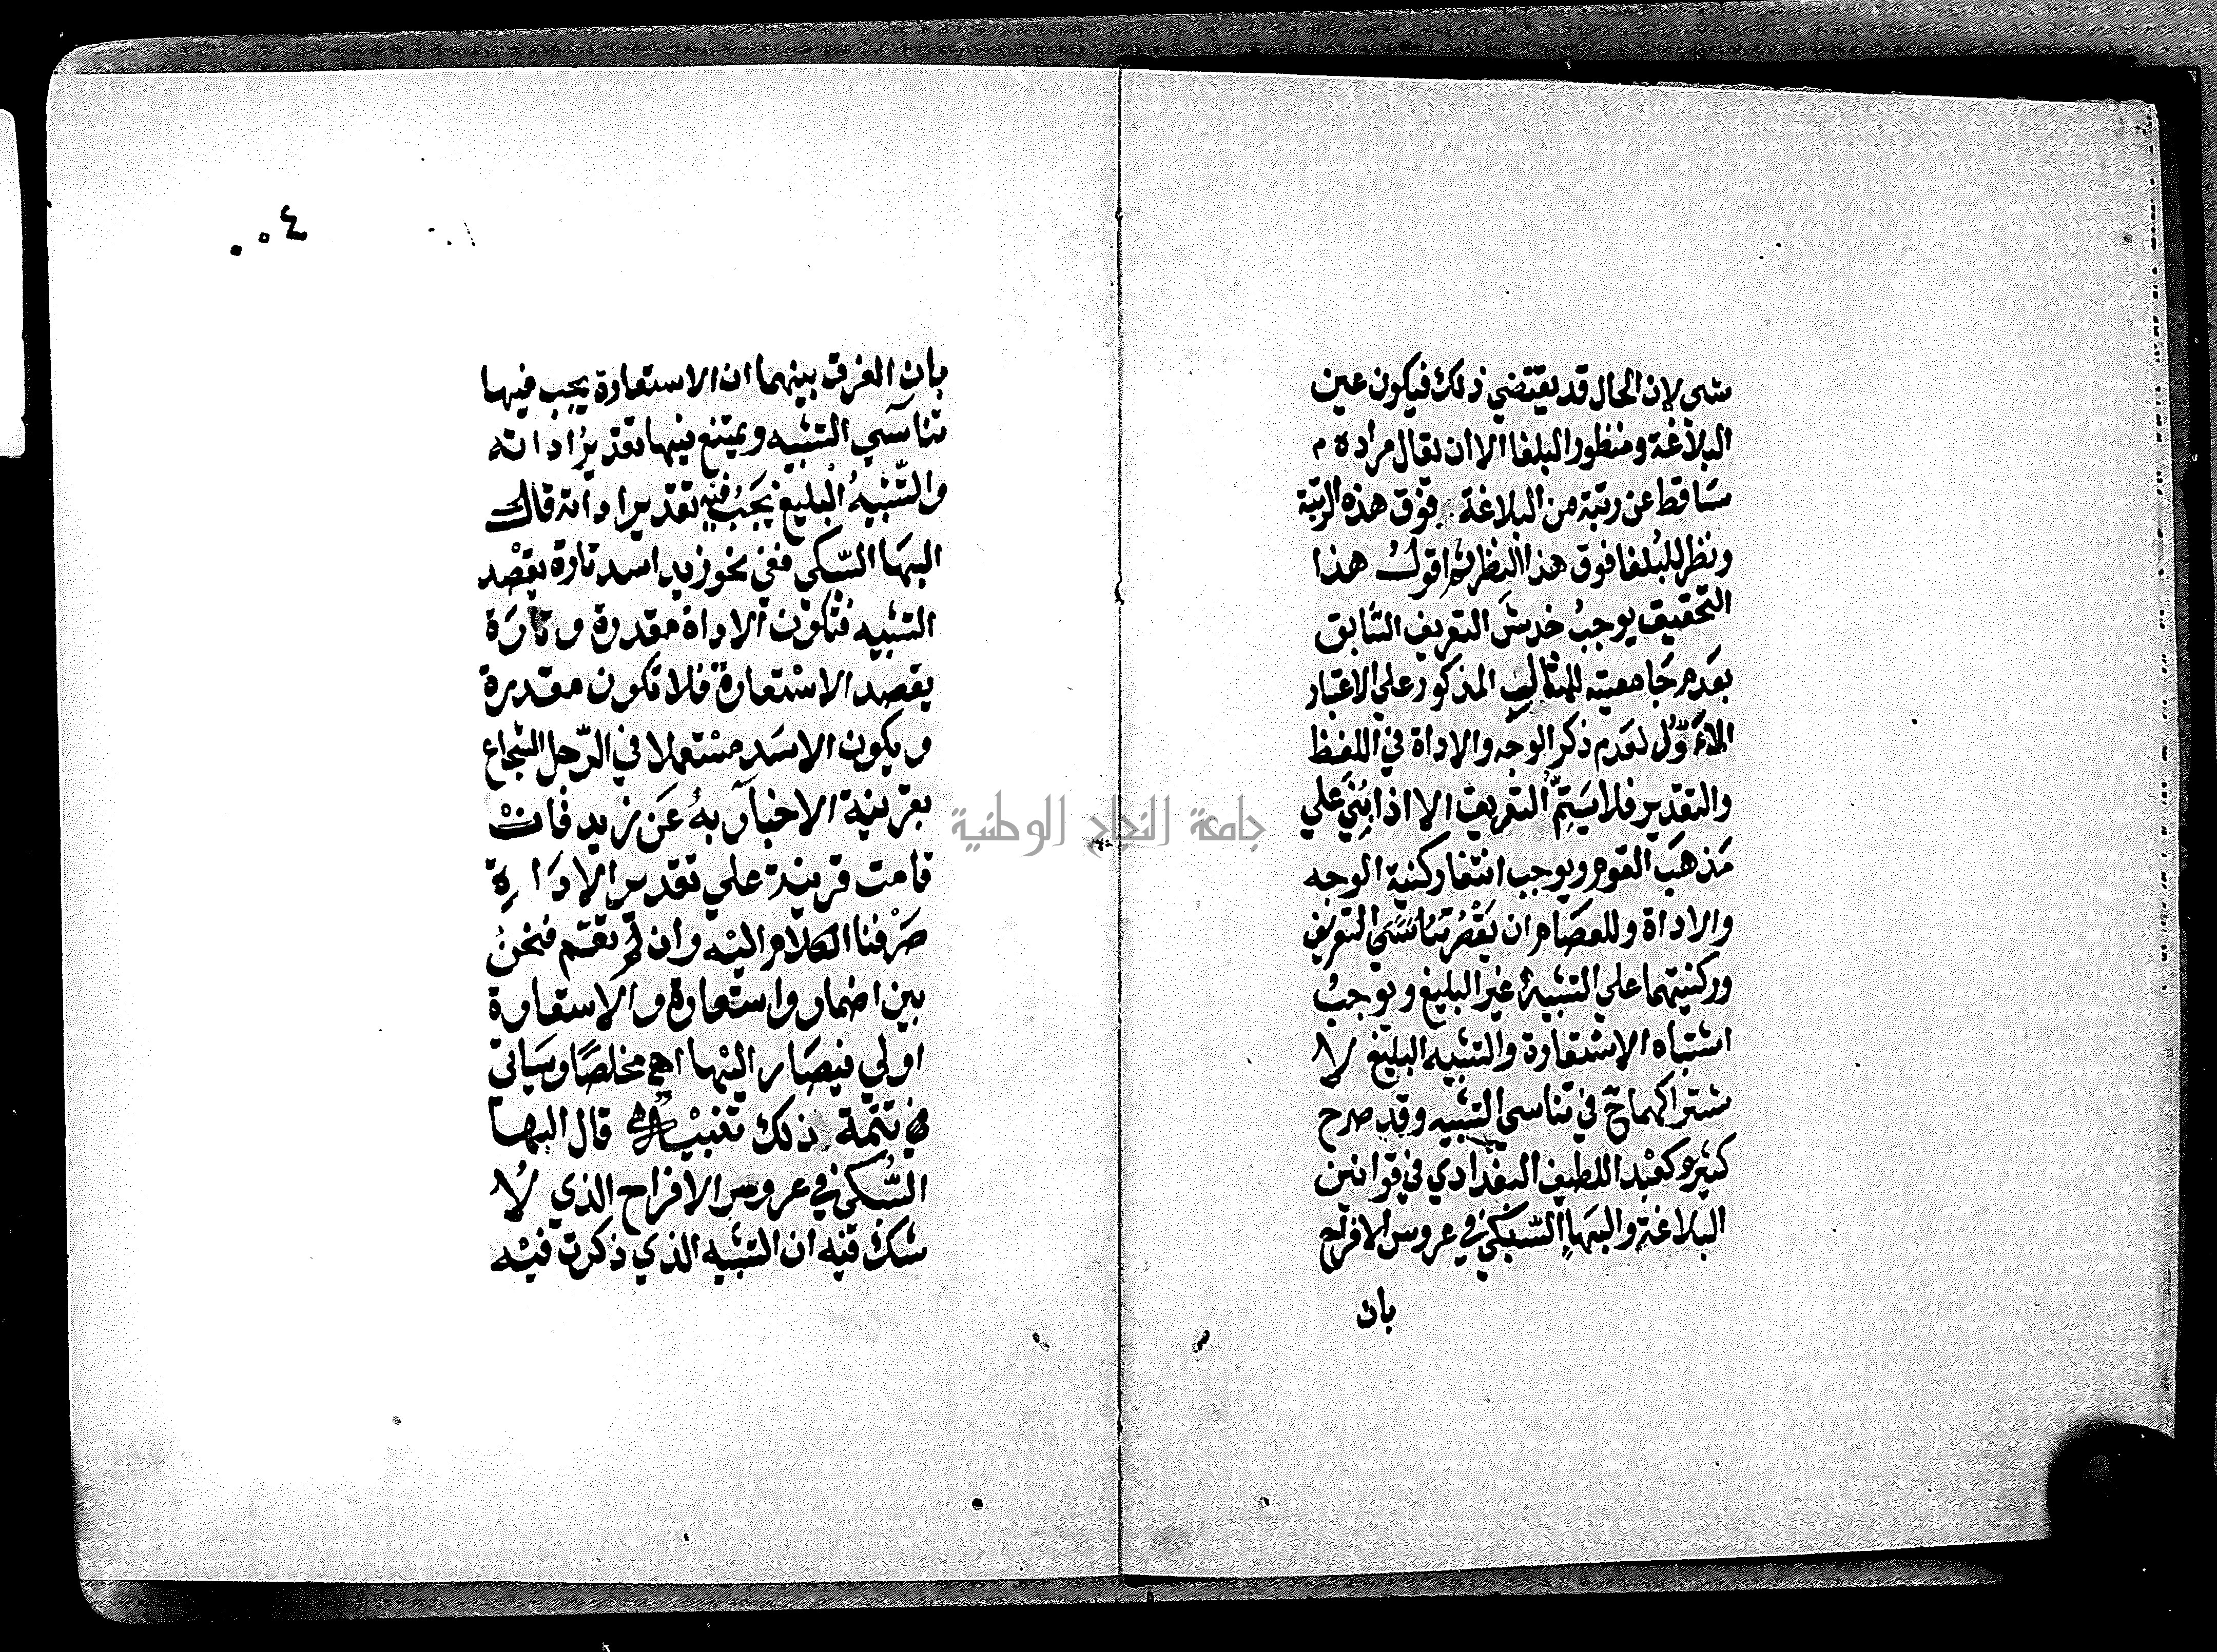 شي لان الحال قد يقتضي ذلك فيكون عين
البلاغة ومنظور البلغا الا ان يقال مراده م
ساقط عن رتبة من البلاغة فوق هذه الرتبة
ونظر للبلغا فوق هذا النظر اقول هذا
التحقيق يوجب خدش التعريف السابق
بعدم جامعيته للمثال المذكور علي الاعتبار
الاول لعدم ذكر الوجه والاداة في اللفظ
والتقدير فلا يتم التعريف الا اذا بني علي
مذهب القوم ويوجب انتفا ركنية الوجه
والاداة وللعصام ان يقصر التعريف
وركنيتهما علي التشبيه غير البليغ ويوجب
اشتباه الاستعارة والتشبيه البليغ لا
شتراكهما ح في تناسي التشبيه وقد صرح
كثير كعبد اللطيف البغدادي في قوانين
البلاغة والبها السبكي في عروس الافراح
بان
٠٠٤
بان الفرق بينهما ان الاستعارة يجب فيها
تناسي التشبيه ويمتنع فيها تقدير اداته
والتشبيه البليغ يجب فيه تقدير اداته قال
البها السبكي ففي نحو زيد اسد تارة يقصد
التشبيه فتكون الاداة مقدرة وتارة
يقصد الاستعارة فلا تكون مقدرة
ويكون الاسد مستعملا في الرجل الشجاع
بقرينة الاخبار به عن زيد فان
قامت قرينة علي تقدير الاداة
صرفنا الكلام اليه وان لم تقم فنحن
بين اضمار واستعارة والاستعارة
اولي فيصار اليها اه مخلصا وسياتي
في تتمة ذلك تنبيه قال البها
السبكي في عروس الافراح الذي لا
شك فيه ان التشبيه الذي ذكرت فيه
جامعة النجاح الوطنية